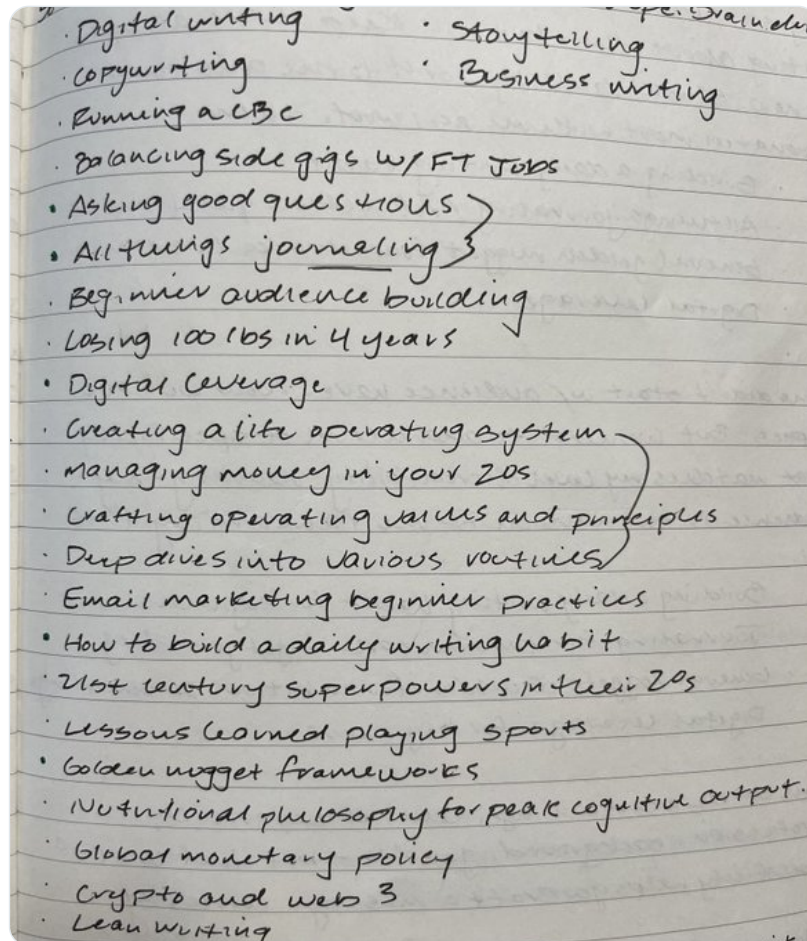 · Digital writing
· Storytelling
· Copywriting
· Business writing
· Running a CBC
· Balancing side gigs w/ FT Jobs
· Asking good questions
· All things journaling
· Beginner audience building
· Losing 100 lbs in 4 years
· Digital Leverage
· Creating a life operating system
· Managing money in your 20s
· Crafting operating values and principles
· Deep dives into various routines
· Email marketing beginner practices
· How to build a daily writing habit
· 21st century superpowers in their 20s
· Lessons learned playing sports
· Golden nugget frameworks
· Nutritional philosophy for peak cognitive output.
· Global monetary policy
· Crypto and web 3
· Lean writing